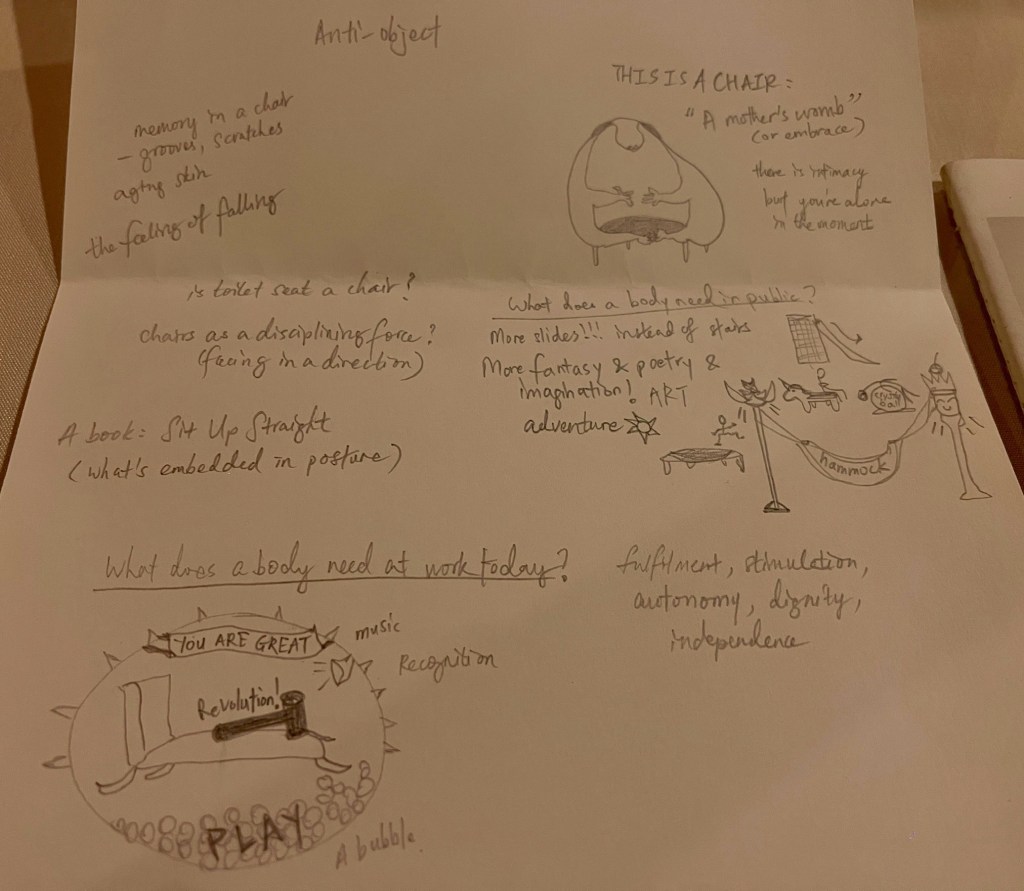 Anti-object
memory in a chair
- grooves, scratches
aging skin
the feeling of falling
THIS IS A CHAIR:
"A mother's womb"
(or embrace)
there is intimacy
but you're alone
in the moment
is toilet seat a chair?
chairs as a disciplining force?
(facing in a direction)
A book: Sit Up Straight
(what's embedded in posture)
What does a body need in public?
More slides!!! instead of stairs
More fantasy & poetry &
imagination! ART
adventure
crystal
ball
hammock
What does a body need at work today?
fulfilment, stimulation,
autonomy, dignity,
independence
YOU ARE GREAT
music
Recognition
Revolution!
PLAY
A bubble.